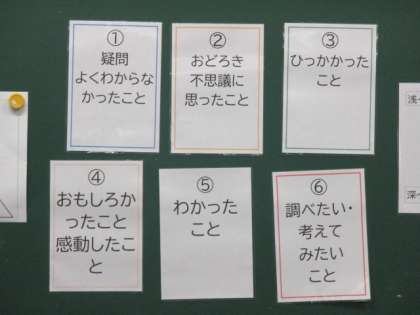 ①
疑問
よくわからな
かったこと
②
おどろき
不思議に
思ったこと
③
ひっかかった
こと
④
おもしろか
ったこと
感動したこ
と
⑤
わかった
こと
⑥
調べたい・
考えて
みたい
こと